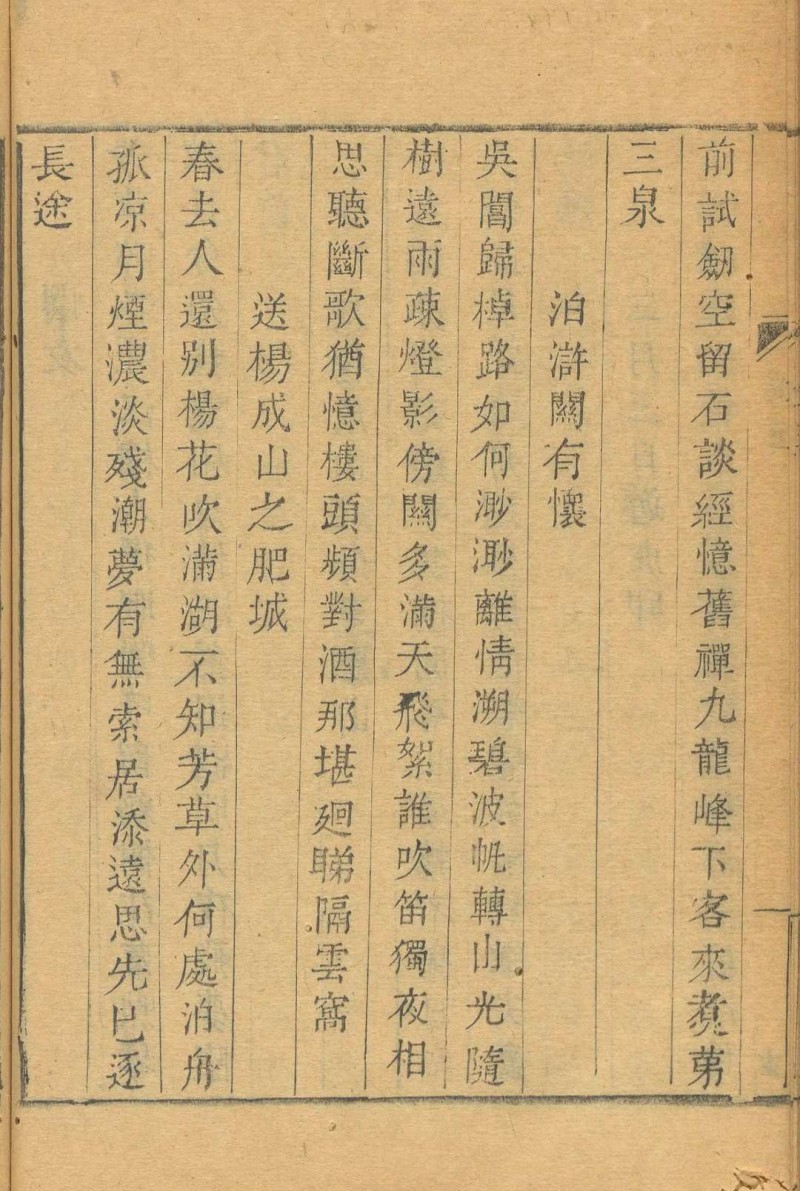 前試劒空留石談經憶舊禪九龍峰下客來煑苐
三泉
泊滸關有懷
吳閶歸棹路如何渺渺離情溯碧波帆轉山光隨
樹遠雨疎燈影傍關多滿天飛絮誰吹笛獨夜相
思聽斷歌猶憶樓頭頻對酒那堪廻睇隔雲窩
送楊成山之肥城
春去人還别楊花吹滿湖不知芳草外何處泊舟
孤凉月煙濃淡殘潮夢有無索居添遠思先已逐
長途